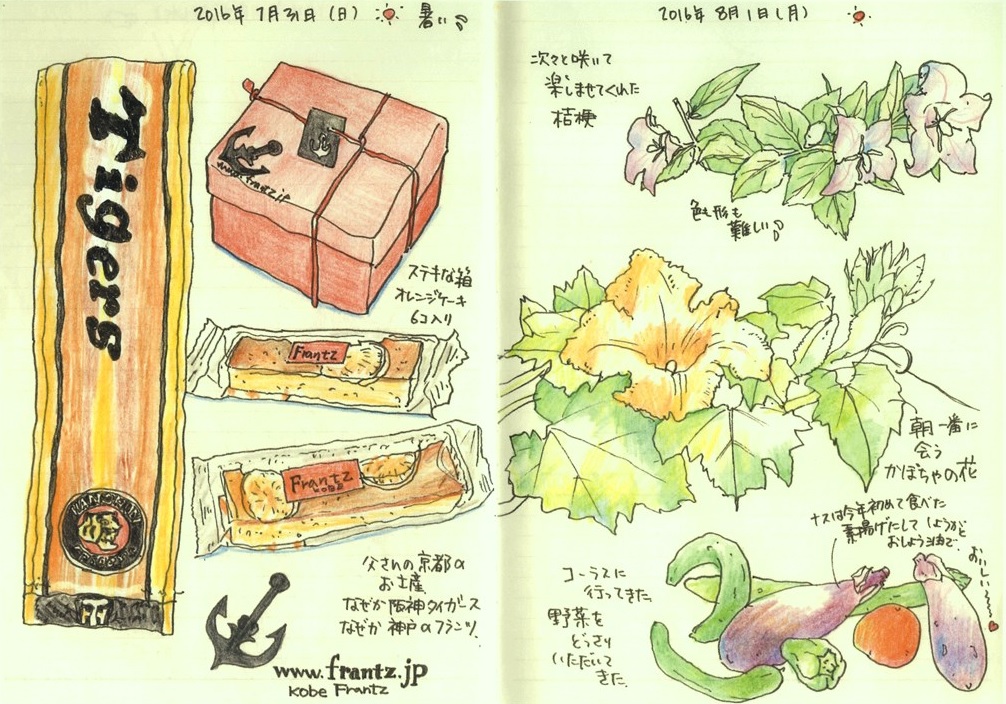 2016年 7月31日 (日) 暑い
Tigers
HANSHIN
www.frantz.jp
ステキな箱
オレンジケーキ
6コ入り
Frantz
Frantz
KOBE
父さんの京都の
お土産
なぜか阪神タイガース
なぜか神戸のフランツ
www.frantz.jp
Kobe Frantz
2016年 8月1日 (月)
次々と咲いて
楽しませてくれた
桔梗
色も形も
難しい
朝一番に
会う
かぼちゃの花
ナスは今年初めて食べた
素揚げにして しょうがと
おしょう油で。
おいしい〜〜
コーラスに
行ってきた。
野菜を
どっさり
いただいて
きた。